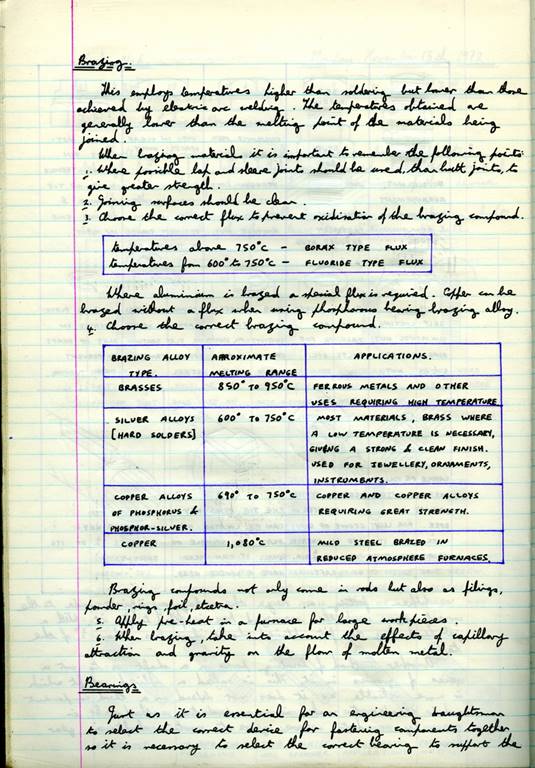 Brazing.
This employs temperatures higher than soldering but lower than those
achieved by electric arc welding. The temperatures obtained are
generally lower than the melting point of the materials being
joined.
When brazing material it is important to remember the following points:
1. Where possible lap and sleeve joints should be used, than butt joints, to
give greater strength.
2. Joining surfaces should be clean.
3. Choose the correct flux to prevent oxidisation of the brazing compound.
temperatures above 750°C – BORAX TYPE FLUX
temperatures from 600° to 750°C – FLUORIDE TYPE FLUX
Where aluminium is brazed a special flux is required. Copper can be
brazed without a flux when using phosphorous bearing brazing alloy.
4. Choose the correct brazing compound.
BRAZING ALLOY TYPE. APROXIMATE MELTING RANGE APPLICATIONS.
BRASSES 850° TO 950°C FERROUS METALS AND OTHER
USES REQUIRING HIGH TEMPERATURE
SILVER ALLOYS 600° TO 750°C MOST MATERIALS, BRASS WHERE
[HARD SOLDERS] A LOW TEMPERATURE IS NECESSARY,
GIVING A STRONG & CLEAN FINISH.
USED FOR JEWELLERY, ORNAMENTS,
INSTRUMENTS.
COPPER ALLOYS 690° TO 750°C COPPER AND COPPER ALLOYS
OF PHOSPHORUS & REQUIRING GREAT STRENGTH.
PHOSPHOR-SILVER.
COPPER 1,080°C MILD STEEL BRAZED IN
REDUCED ATMOSPHERE FURNACES.
Brazing compounds not only come in rods but also as filings,
powder, rings, foil, etcetra.
5. Apply pre-heat in a furnace for large workpieces.
6. When brazing, take into account the effects of capillary
attraction and gravity on the flow of molten metal.
Bearings
Just as it is essential for an engineering draughtsman
to select the correct device for fastening components together
so it is necessary to select the correct bearing to support the